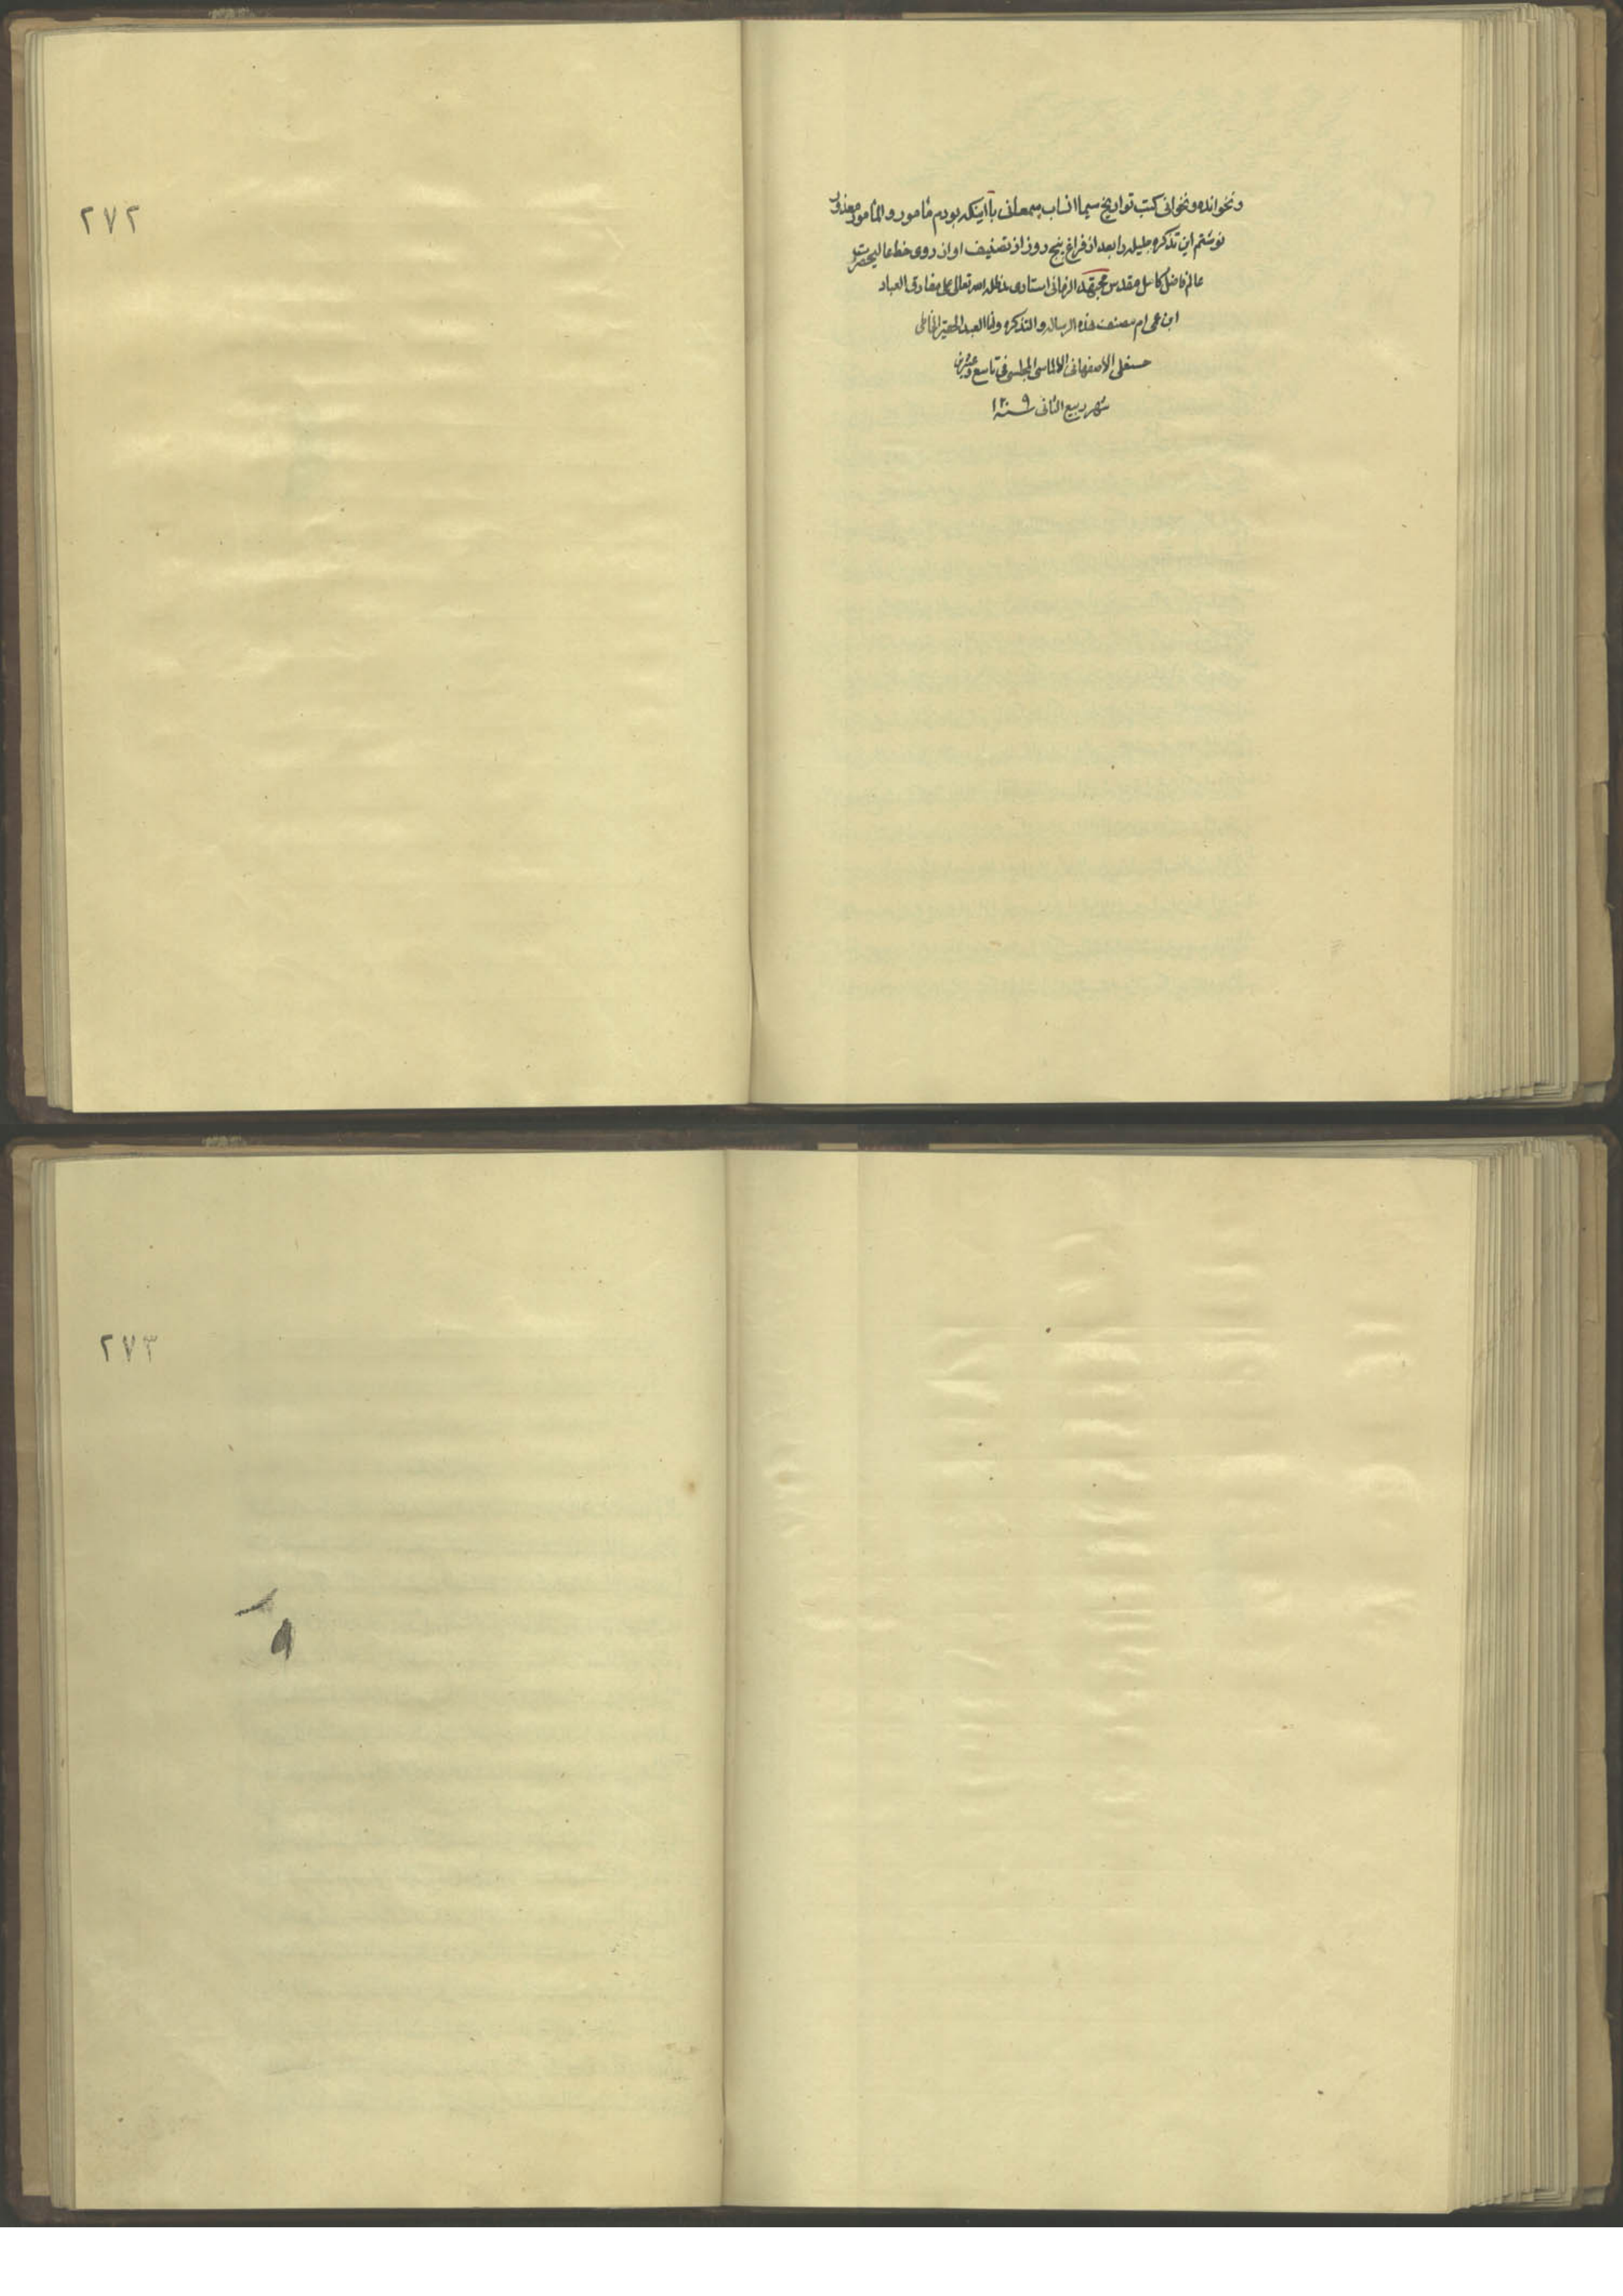 و نخوانده و نخوانی کتب تواریخ سیما انساب بی‌معلی با اینکه بودم مأمور و المأمور معذور
نوشتم این تذکره جلیله را بعد از فراغ پنج روز از تصنیف او از روی خط عالیحضرت
عالم فاضل کامل مقدس مجتهد الزمانی استادی مدظله الله تعالی علی مفارق العباد
ابن عمی ام مصنف هذه الرساله و التذکره و انا العبد الحقیر الخاطی
حسنعلی الاصفهانی الالماسی المجلسی فی تاسع و عشرین
شهر ربیع الثانی سنه ۱۲۰۹
۲۷۲
۲۷۳